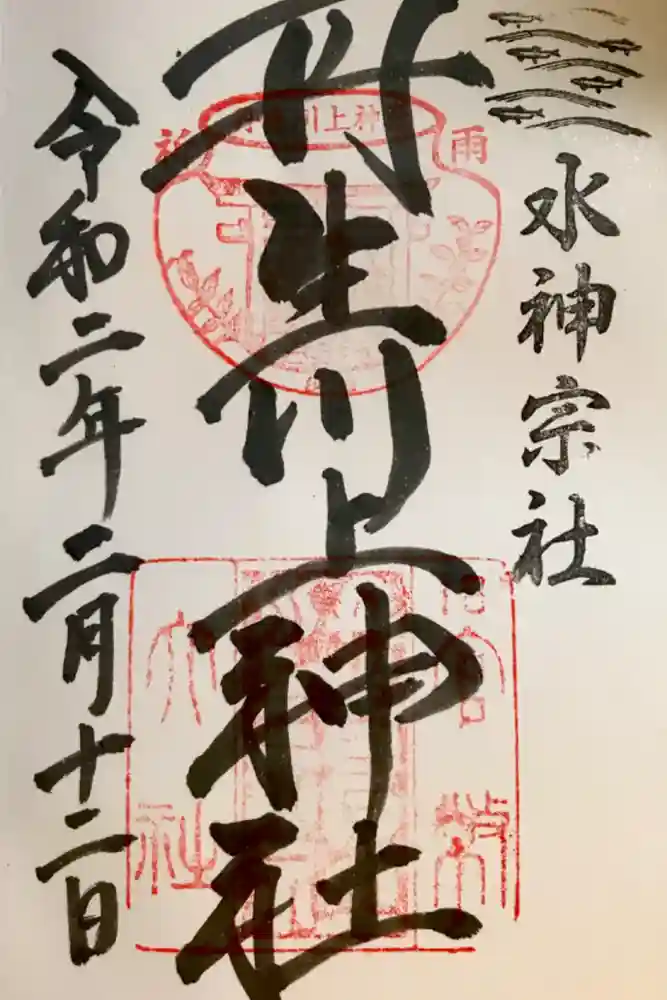 水神宗社
丹生川上神社
神上川
雨
令和二年二月十二日
官幣
大社